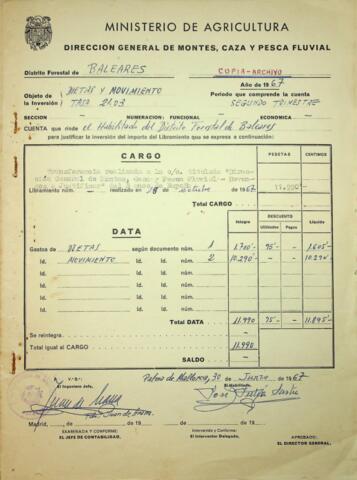 MINISTERIO DE AGRICULTURA
DIRECCION GENERAL DE MONTES, CAZA Y PESCA FLUVIAL
Distrito Forestal de BALEARES
COPIA-ARCHIVO
Año de 1967
Objeto de la Inversión: DIETAS Y MOVIMIENTO TASA 21.03
Periodo que comprende la cuenta SEGUNDO TRIMESTRE
SECCION — NUMERACION: FUNCIONAL — ECONOMICA —
CUENTA que rinde el Habilitado del Distrito Forestal de Baleares
para justificar la inversión del importe del Libramiento que se expresa a continuación:
CARGO PESETAS CENTIMOS
Transferencia realizada a la c/c. titulada "Direc-
ción General de Montes, Caza y Pesca Fluvial-
a Justificar" del Banco de España
Libramiento núm. — realizado en de de 1967
DESCUENTO
DATA Integro Utilidades Pagos Líquido
Gastos de DIETAS según documento núm. 1 1.700'- 95'- - 1.605'-
Id. MOVIMIENTO Id. Id. núm. 2 10.290'- - - 10.290'-
Id. Id. Id. núm.
Id. Id. Id. núm.
Id. Id. Id. núm.
Total DATA 11.990 95'- - 11.895'-
Se reintegra —
Total igual al CARGO 11.990
SALDO —
Palma de Mallorca, 30 de JUNIO de 1967
V.º B.º
El Ingeniero Jefe,
El Habilitado,
Madrid, de de 19
EXAMINADA Y CONFORME:
EL JEFE DE CONTABILIDAD,
Intervenido y Conforme:
El Interventor Delegado,
APROBADO:
EL DIRECTOR GENERAL,